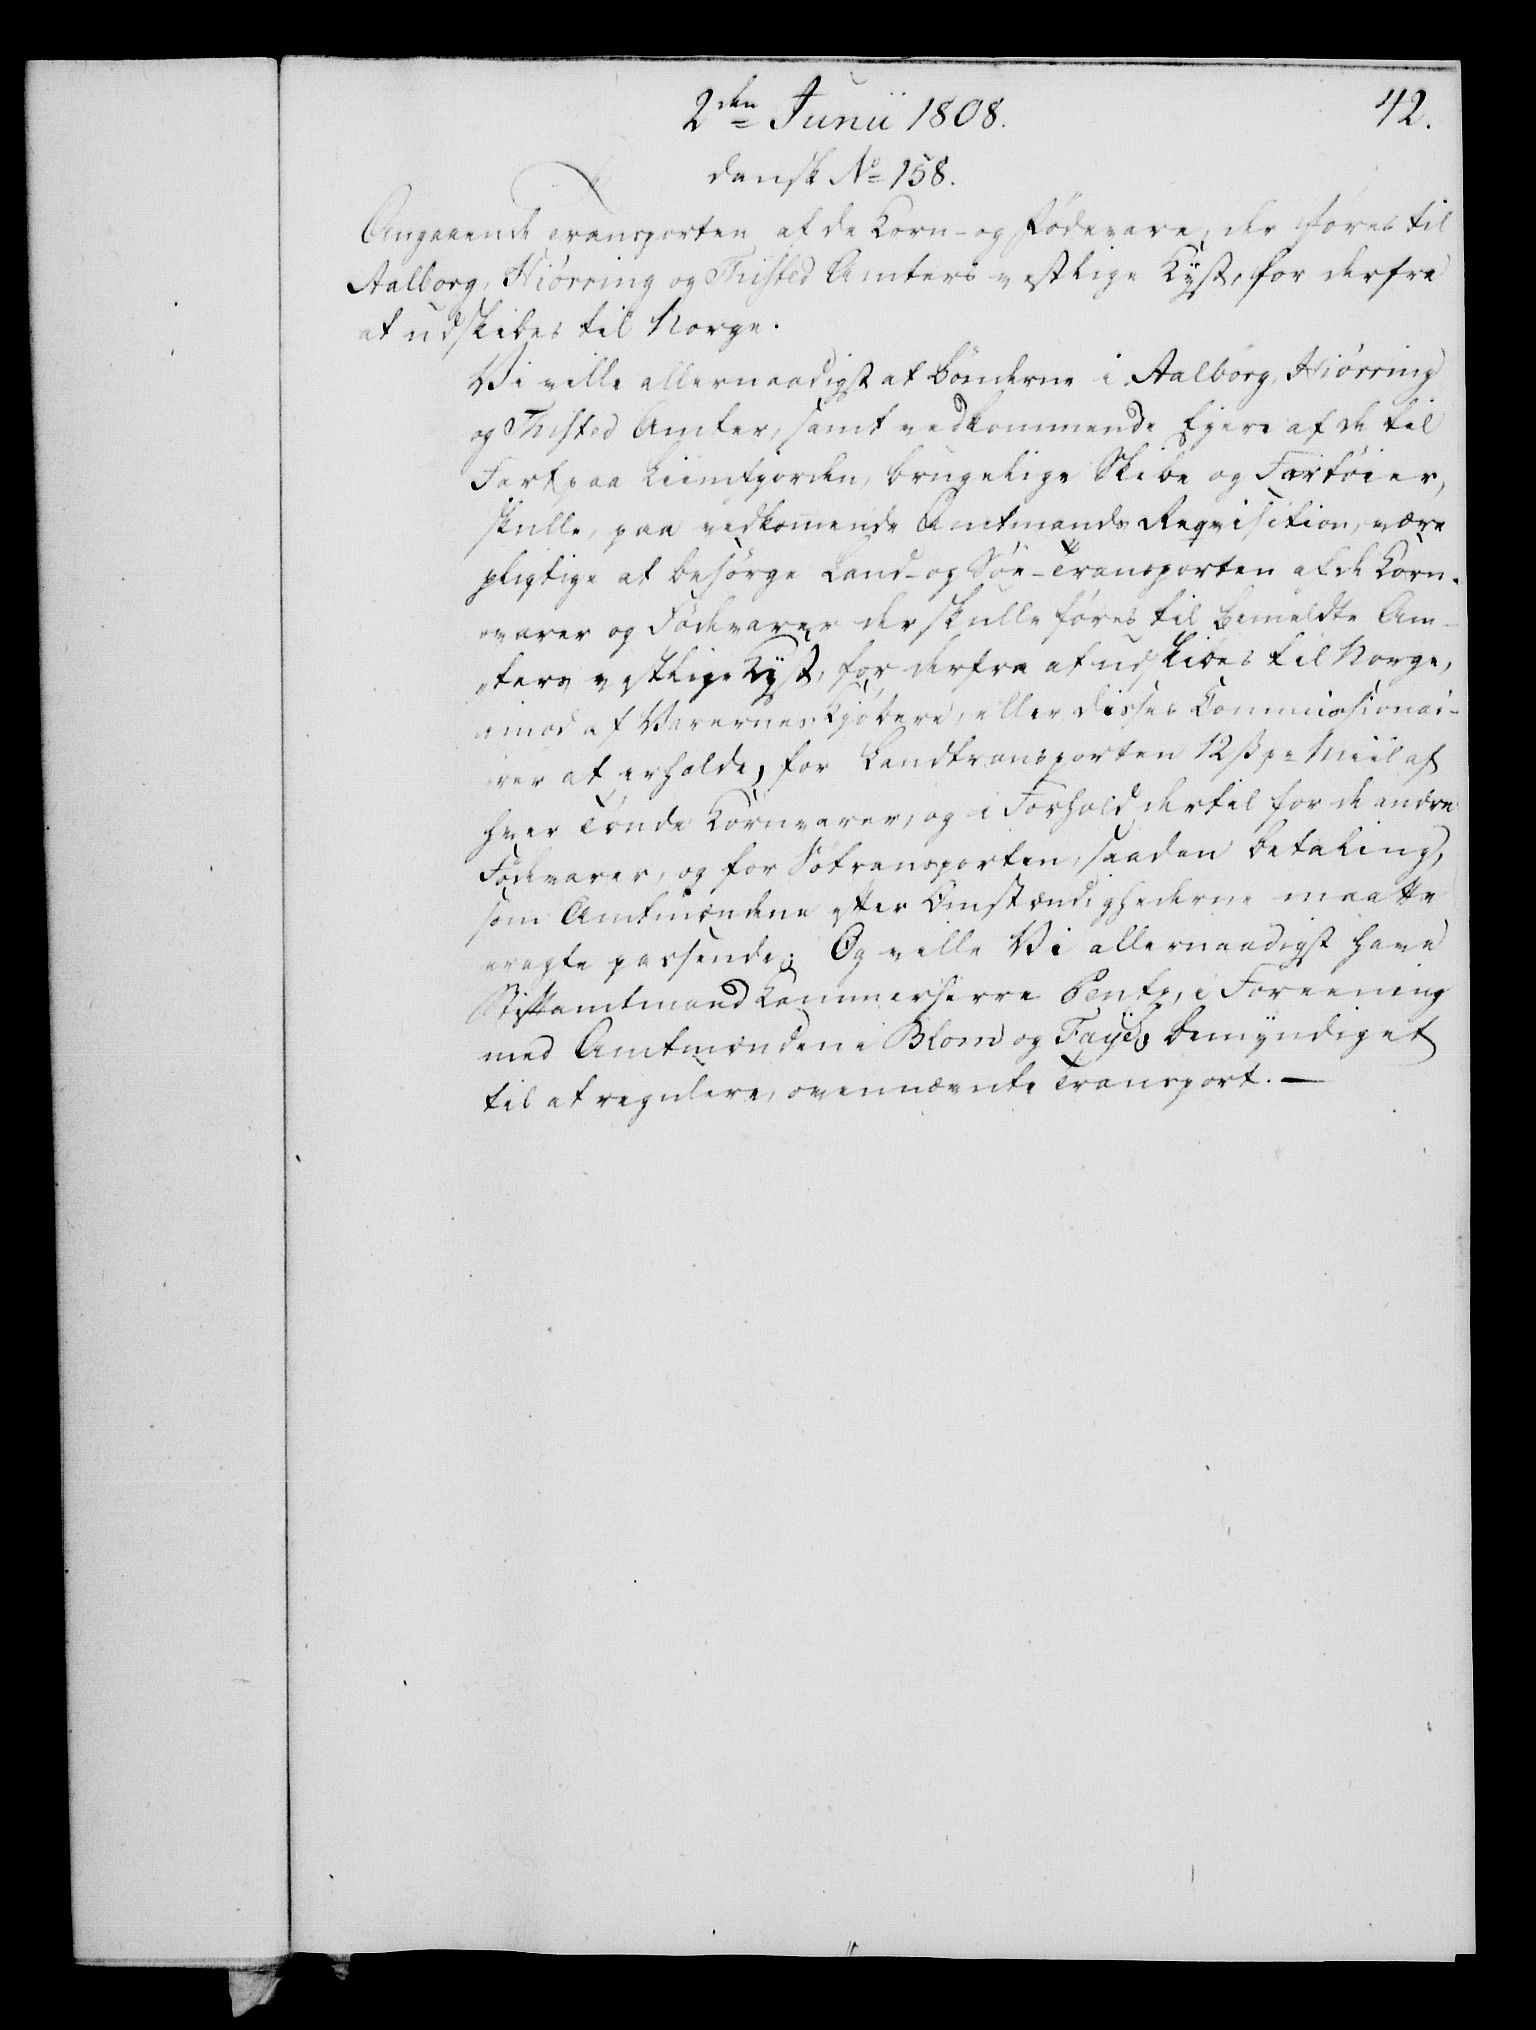 2den Junii 1808.
42.
dansk No 158.
Angaaende Transporten af de Korn- og Födevare, der föres til
Aalborg, Hiörring og Thisted Amters vestlige Kyst, for derfra
at udskibes til Norge.
Vi ville allernaadigst at Bönderne i Aalborg, Hiörring
og Thisted Amter, samt vedkommende Ejere af de til
Fart paa Liimfjorden, brugelige Skibe og Fartöier,
skulle, paa vedkomende Amtmands Reqvisition, være
pligtige at besörge Land- og Söe-Transporten af de Korn-
varer og Födevarer der skulle föres til bemeldte Am-
ters vestlige Kyst, for derfra at udskibes til Norge,
imod af Varernes Kjöbere, eller disses Commissionai-
rer at erholde, for Landtransporten 12 ß pr Miil af
hver Tönde Kornvarer, og i Forhold dertil for de andre
Födevarer, og for Sötransporten, saadan Betaling,
som Amtmændene efter Omstændighederne maatte
eragte passende; Og ville Vi allernaadigst have
Stiftamtmand Kammerherre Pentz, i Foreening
med Amtmændene Blom og Faye, bemyndiget
til at regulere, ovennævnte Transport. —